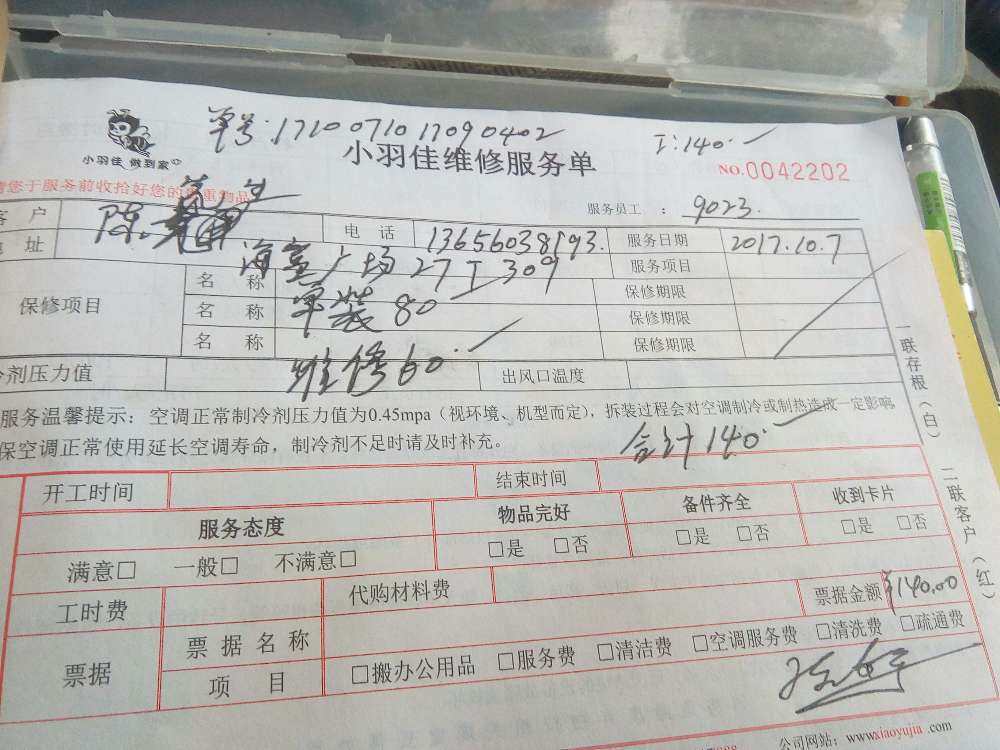 单号:1710071017090402
工:140.
小羽佳 做到家
小羽佳维修服务单
NO.0042202
请您于服务前收拾好您的贵重物品
服务员工 : 9023.
客 户 陈 先生 电 话 13656038193. 服务日期 2017.10.7
地 址 海富广场27T309 服务项目
保修项目
名 称 单装80 保修期限
名 称 保修期限
名 称 保修期限
冷剂压力值 维修60. 出风口温度
服务温馨提示：空调正常制冷剂压力值为0.45mpa（视环境、机型而定），拆装过程会对空调制冷或制热造成一定影响
保空调正常使用延长空调寿命，制冷剂不足时请及时补充。
合计140.
一联存根（白） 二联客户（红）
开工时间 结束时间
服务态度 物品完好 备件齐全 收到卡片
满意□ 一般□ 不满意□ □是 □否 □是 □否 □是 □否
工时费 代购材料费 票据金额 ¥140.00
票据 票据名称
项 目 □搬办公用品 □服务费 □清洁费 □空调服务费 □清洗费 □疏通费
公司网站：www.xiaoyujia.com